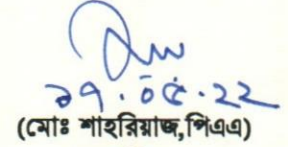 ০৭.০৫.২২
(মোঃ শাহরিয়াজ,পিএএ)